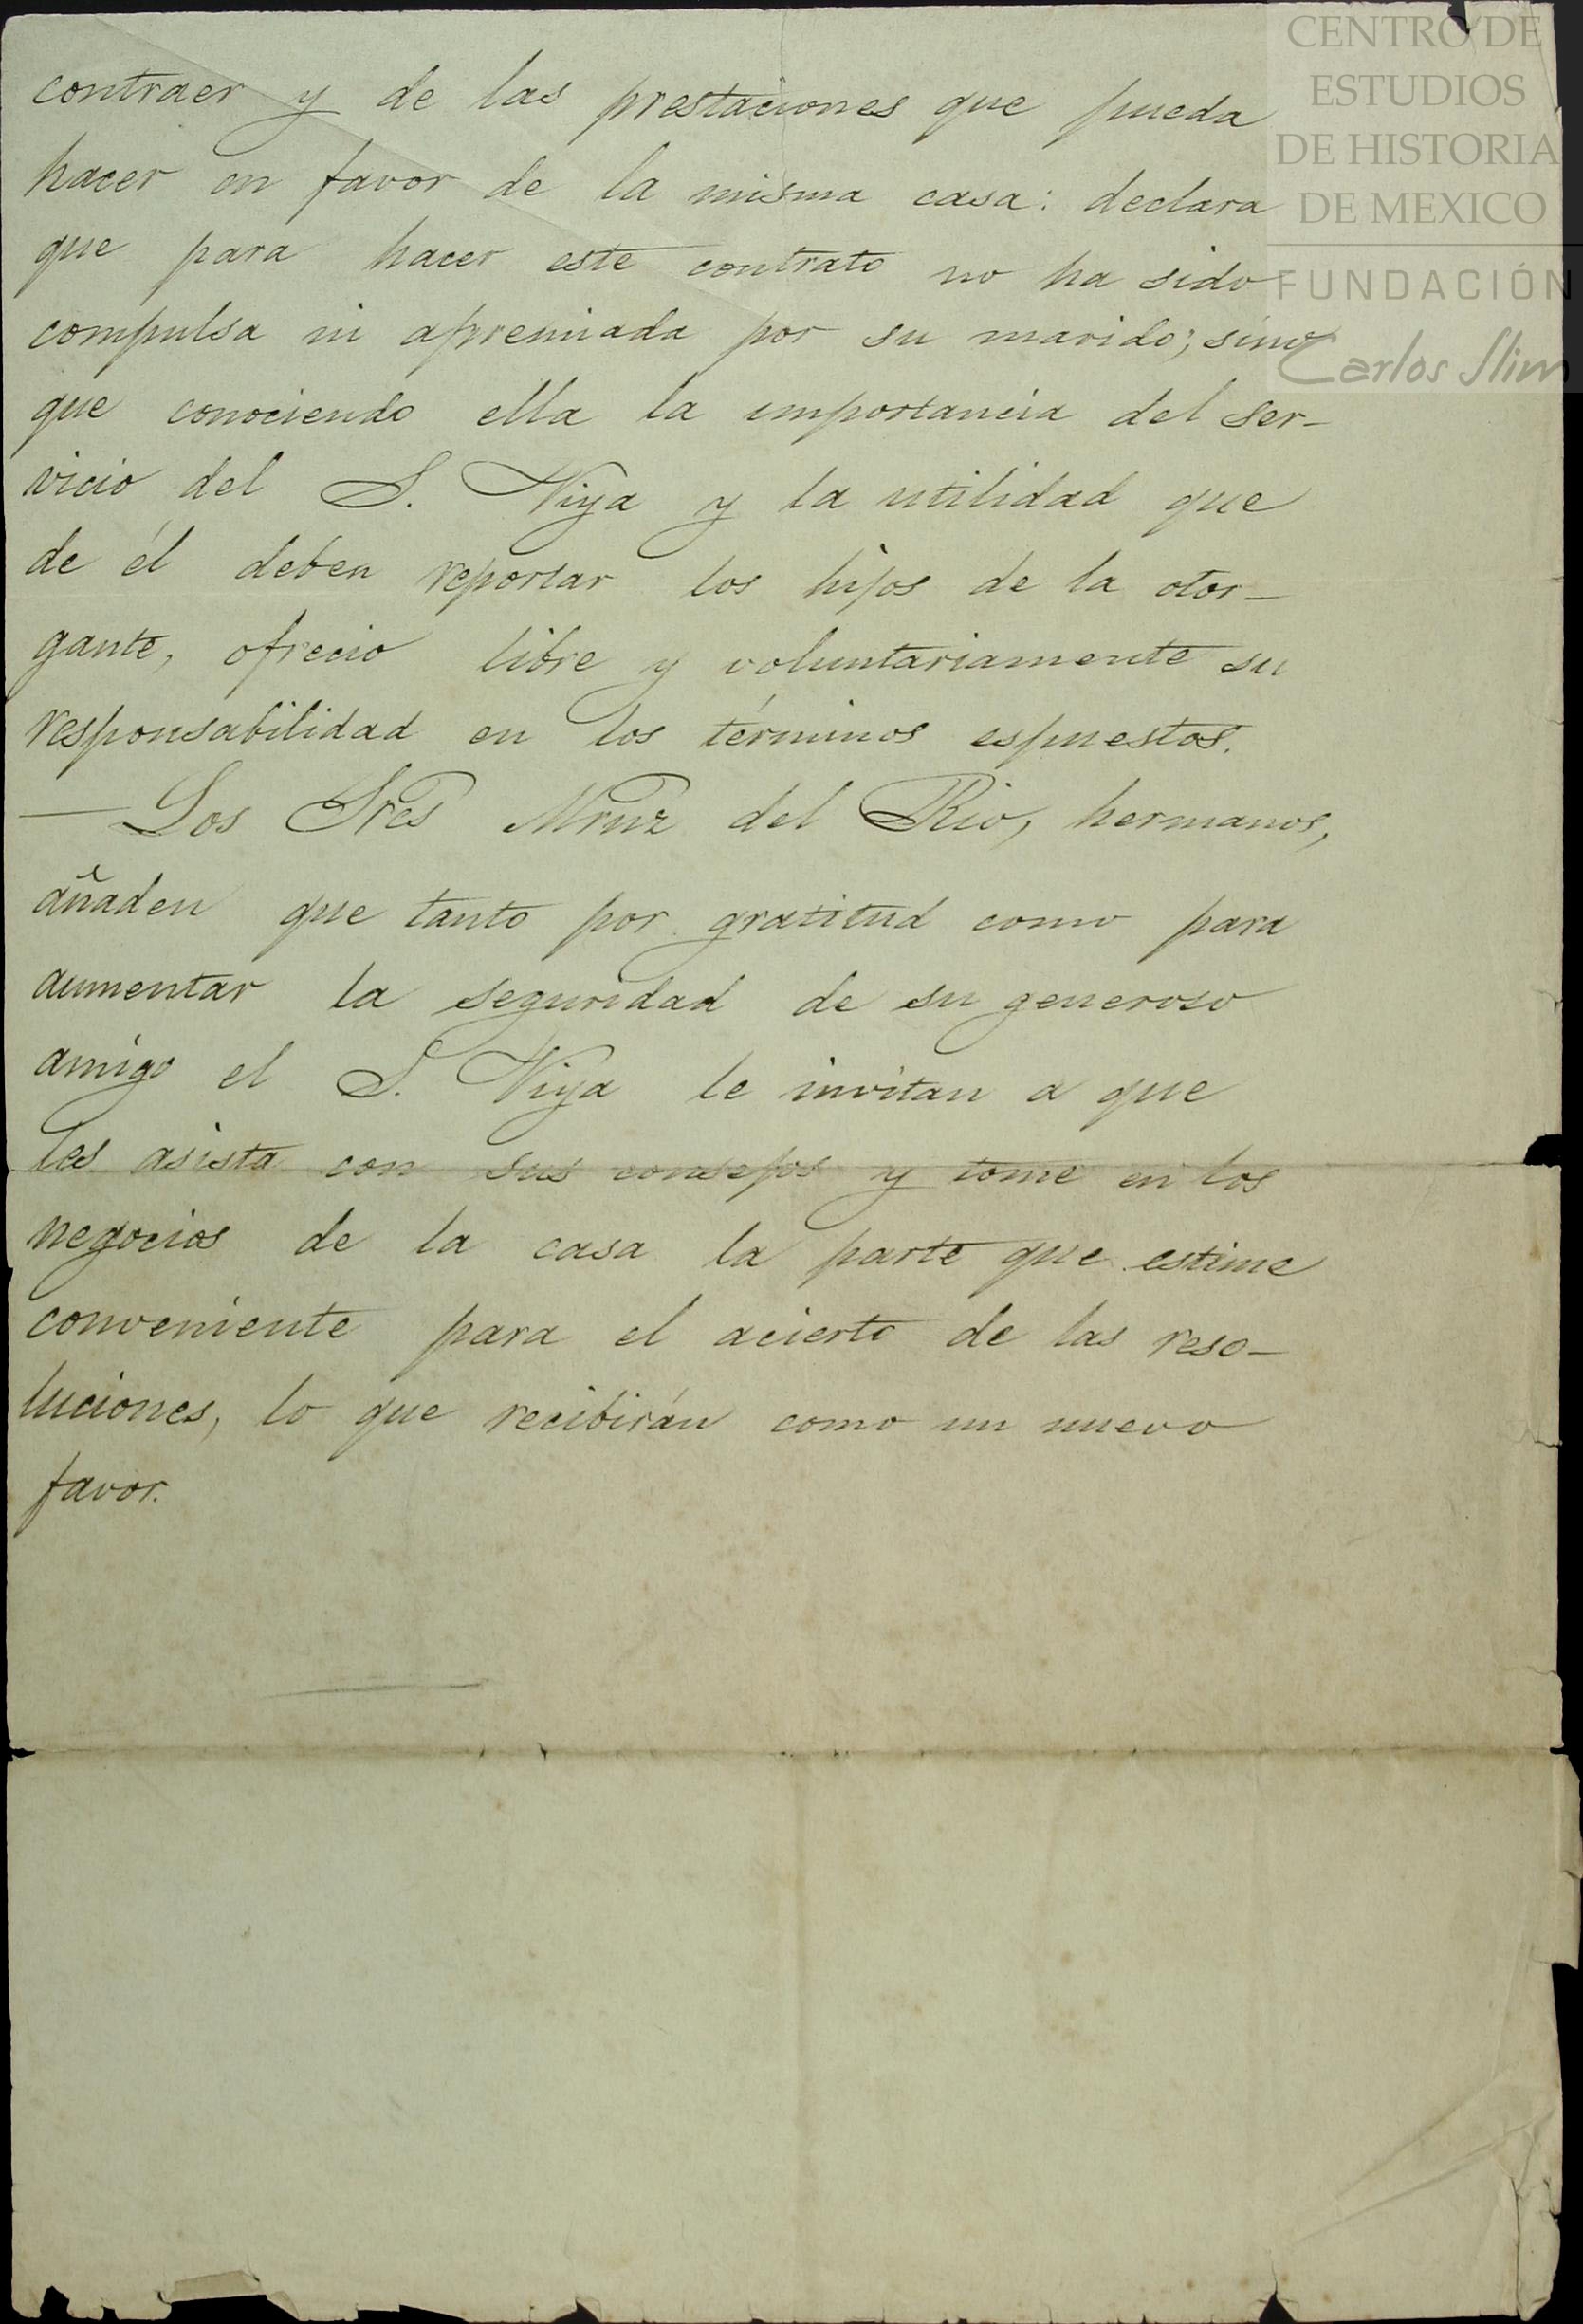 contraer y de las prestaciones que pueda
hacer en favor de la misma casa: declara
que para hacer este contrato no ha sido
compulsa ni apremiada por su marido; sino
que conociendo ella la importancia del ser-
vicio del S. Viya y la utilidad que
de él deben reportar los hijos de la otor-
gante, ofrecio libre y voluntariamente su
responsabilidad en los términos espuestos.
— Los Sres Mrnz del Rio, hermanos,
añaden que tanto por gratitud como para
aumentar la seguridad de su generoso
amigo el S. Viya le invitan a que
les asista con sus consejos y tome en los
negocios de la casa la parte que estime
conveniente para el acierto de las reso-
luciones, lo que recibirán como un nuevo
favor.
CENTRO DE
ESTUDIOS
DE HISTORIA
DE MEXICO
FUNDACIÓN
Carlos Slim